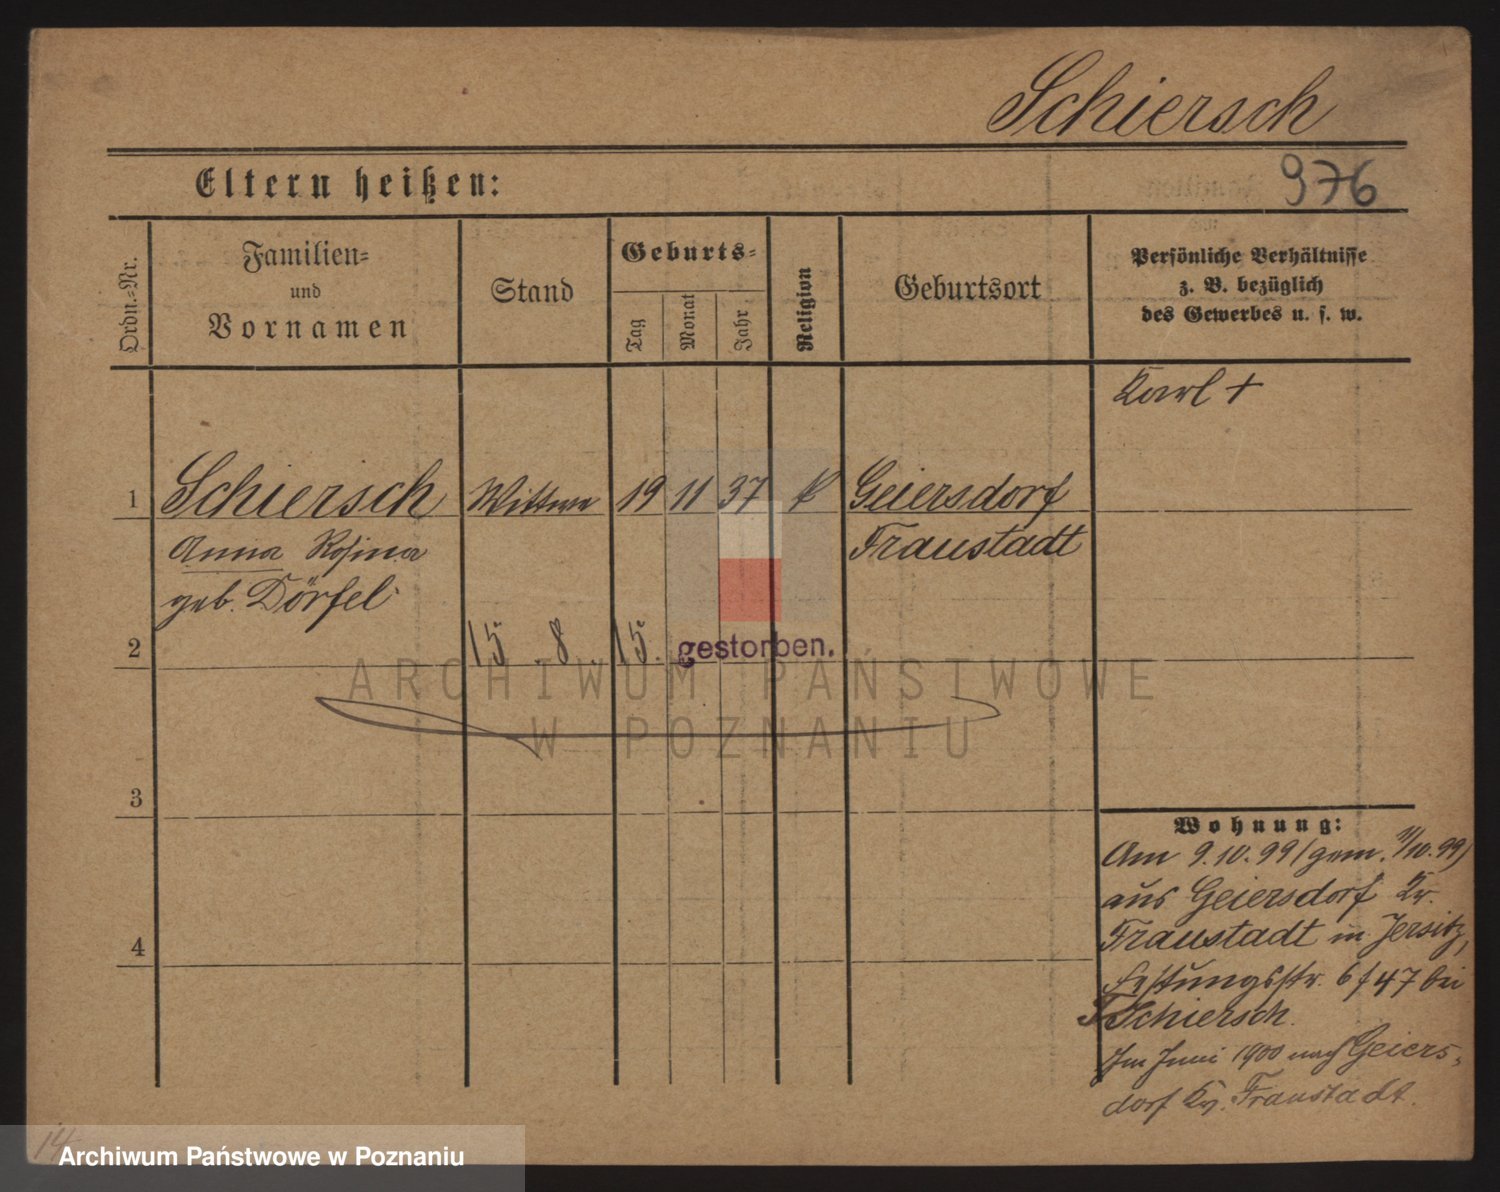 Schiersch
Eltern heißen:
976
Ordn.-Nr.
Familien-
und
Vornamen
Stand
Geburts-
Tag
Monat
Jahr
Religion
Geburtsort
Persönliche Verhältnisse
z. B. bezüglich
des Gewerbes u. s. w.
Karl +
1 Schiersch Wittwe 19 11 37 k Geiersdorf
Anna Rosina Fraustadt
geb. Dörfel
2 15. 8. 15. gestorben.
ARCHIWUM PAŃSTWOWE
W POZNANIU
3
Wohnung:
Am 9.10.99 (gem. 11/10.99)
aus Geiersdorf Kr.
4 Fraustadt in Jersitz,
Festungsstr. 6 f 47 bei
Schiersch.
Im Juni 1900 nach Geiers-
dorf Kr. Fraustadt.
14
Archiwum Państwowe w Poznaniu